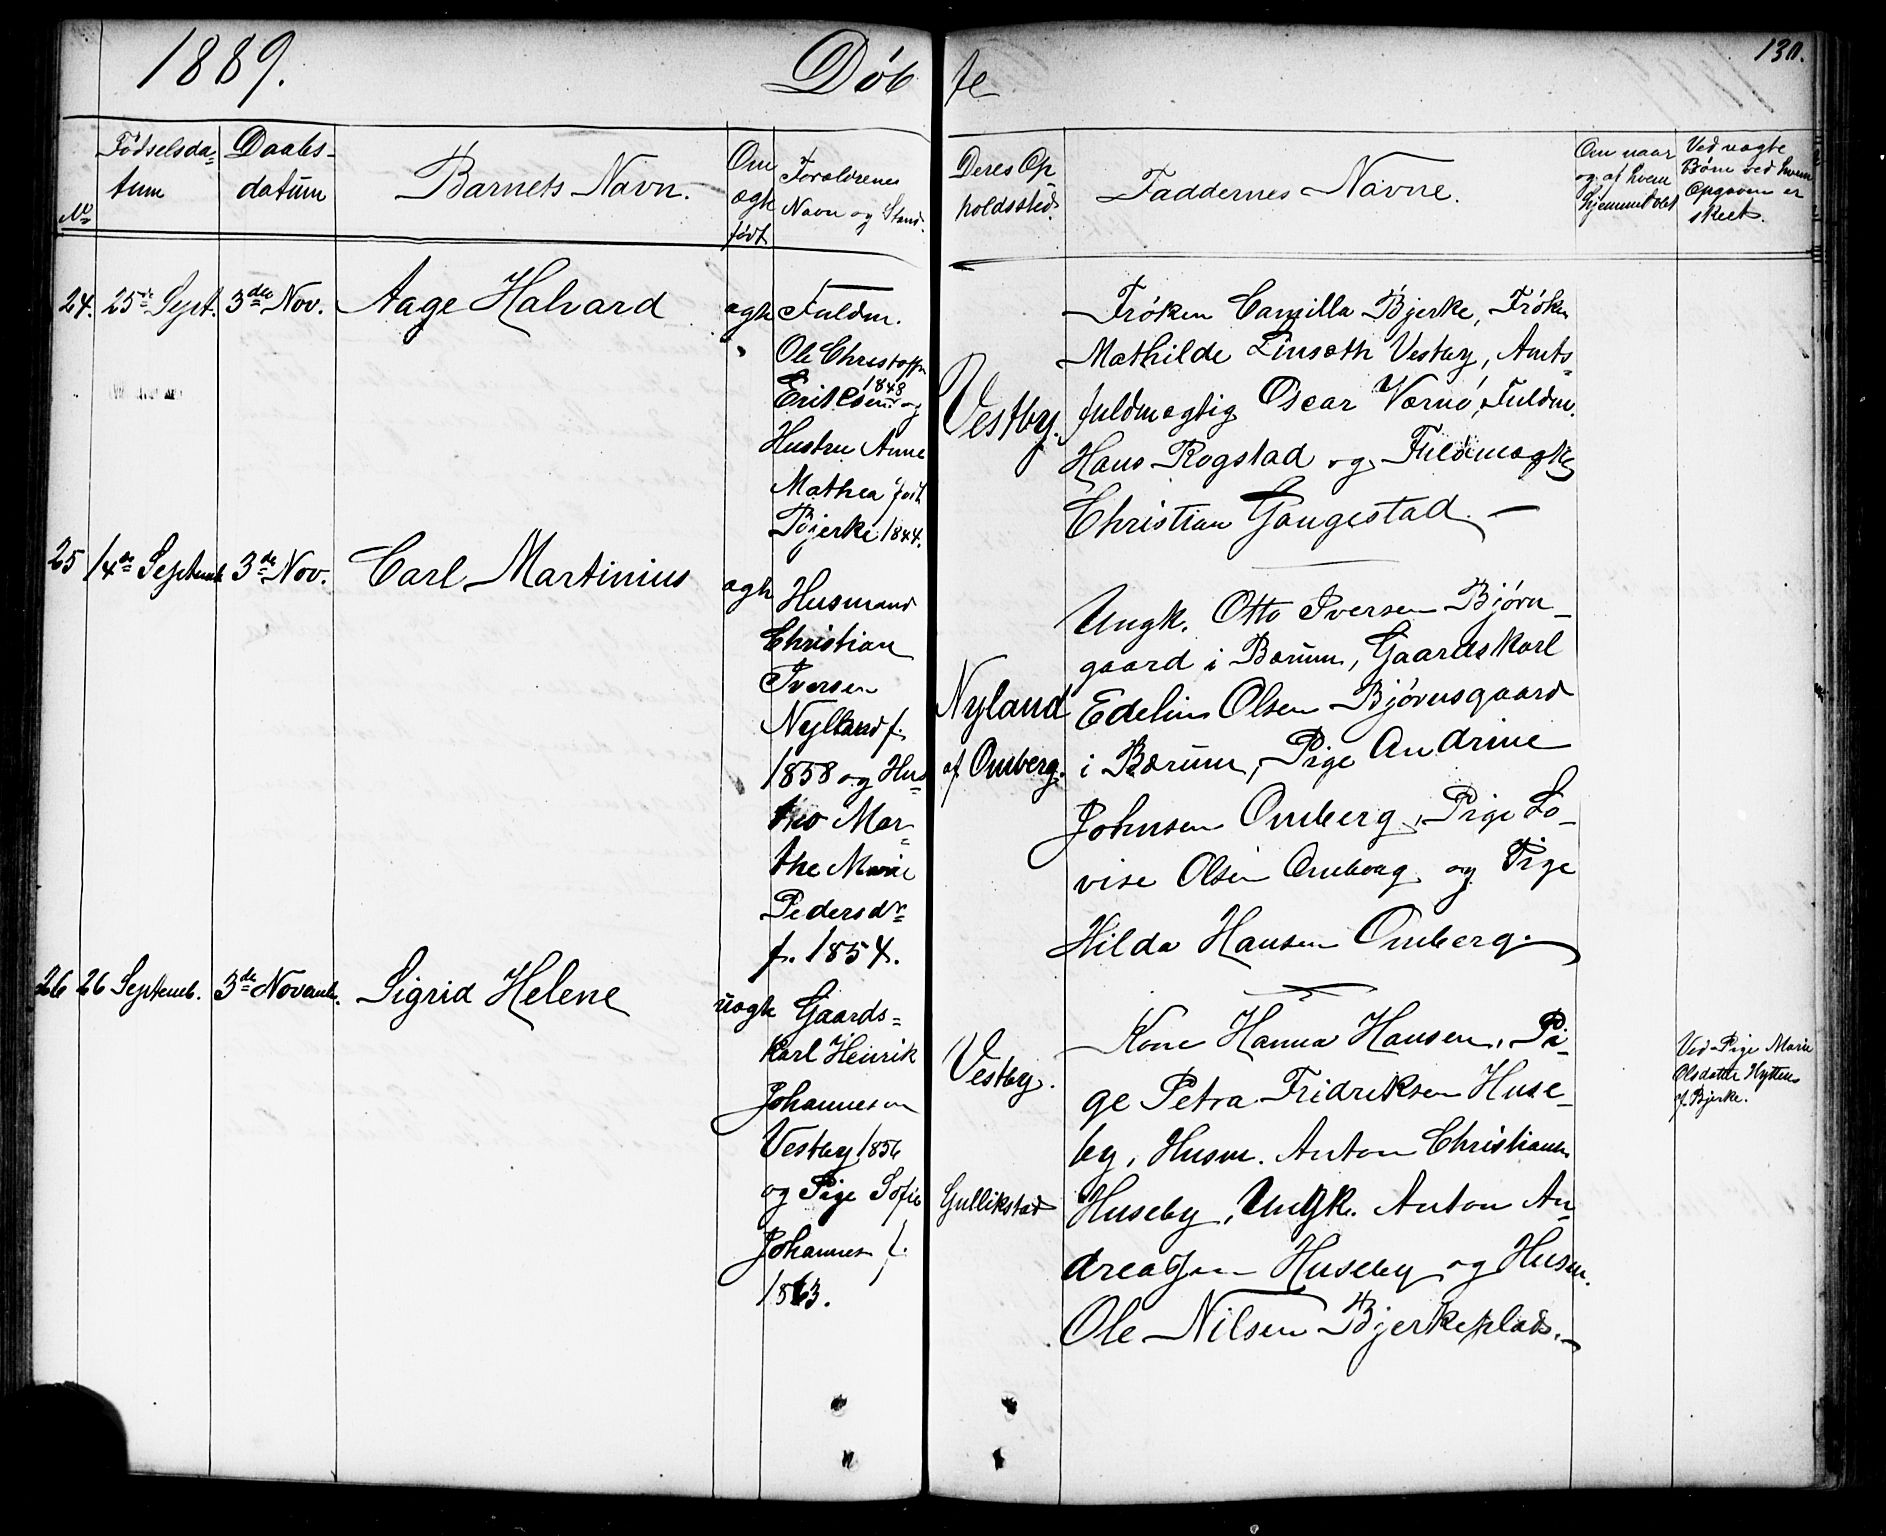 1889.
Døb
te
130.
No
Fødselsda=
tum
Daabs-
datum
Barnets Navn.
Om
ægte
født
Forældrenes
Navn og Stand.
Deres Op
holdssted.
Faddernes Navne.
Om naar
og af hvem
hjemmedøbt
Ved uægte
Børn ved hvem
Opgaven er
skeet.
24.
25de Sept.
3die Nov.
Aage Halvard
ægte
Fuldm.
Ole Christoffer
Eriksen 1848 og
Hustru Anne
Mathea født
Bjerke 1844.
Vestby.
Frøken Camilla Bjerke, Frøken
Mathilde Linsæth Vestby, Amts=
fuldmægtig Oscar Værnø, Fuldm.
Hans Rogstad og Fuldmægtig
Christian Gaugestad. —
25
14de Septemb
3de Nov.
Carl Martinius
ægte
Husmand
Christian
Iversen
Nylland f.
1858 og Hus=
tro Mar=
the Marie
Pedersdr
f. 1854.
Nyland
af Omberg.
Ungk. Otto Iversen Bjørn-
gaard i Bærum, Gaardskarl
Edelius Olsen Bjørnsgaard
i Bærum, Pige Andrine
Johnsen Omberg, Pige Lo-
vise Olsen Omberg og Pige
Hilda Hansen Omberg.
26
26 Septemb.
3de Novemb.
Sigrid Helene
uægte
Gaards=
karl Henrik
Johannesen
Vestby 1856
og Pige Sofie
Johannesen f.
1863.
Vestby.
Gullikstad
Kone Hanna Hansen, Pi-
ge Petra Fridriksen Huse-
by, Husm. Anton Christiansen
Huseby, Ungk. Anton An-
dreassen Huseby og Husm.
Ole Nilsen Bjerkeplads.
Ved Pige Marie
Olsdatter Hytten
af Bjerke.